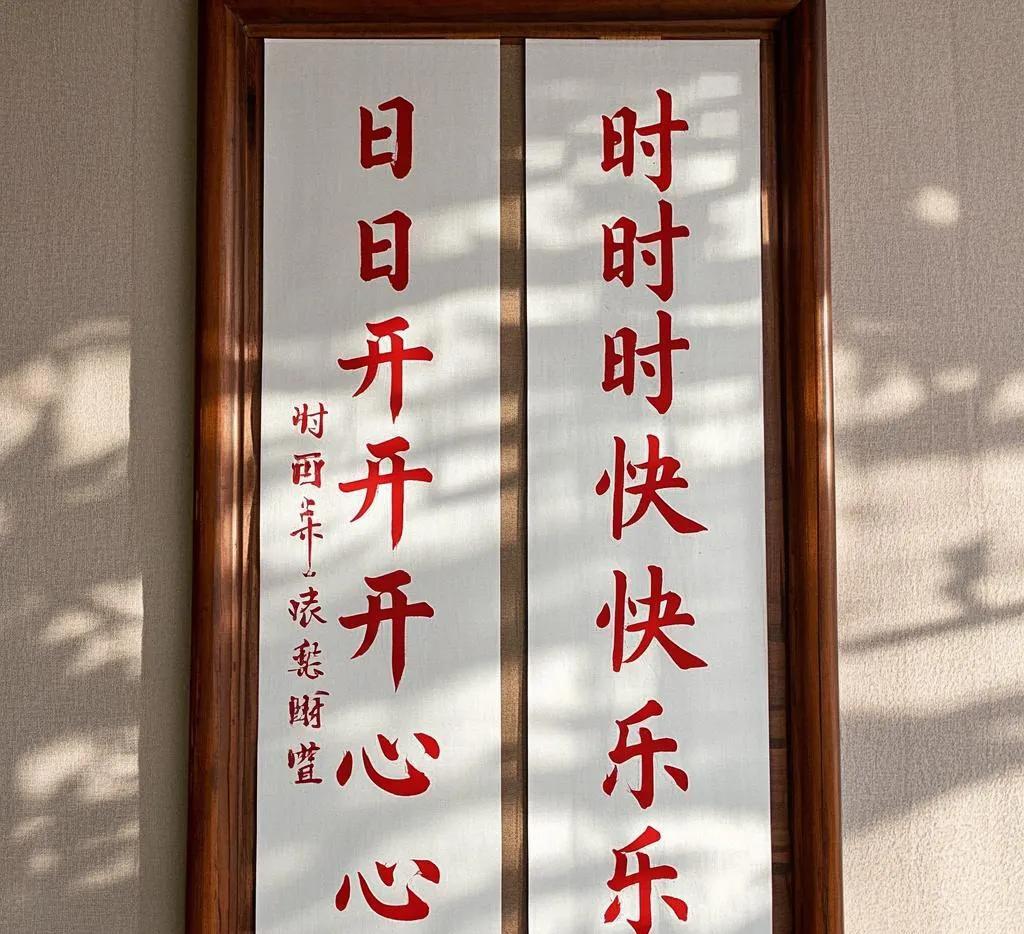 时时时快快乐乐
日日开开开心心